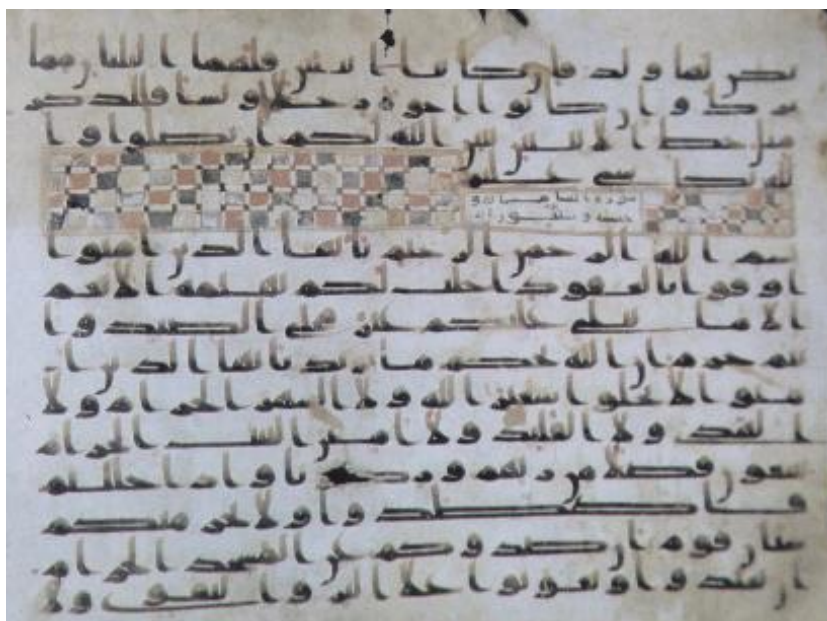 يكن لها ولد فان كانتا اثنتين فلهما الثلثان مما
ترك وان كانوا اخوة رجالا ونسا فللذكر
مثل حظ الانثيين يبين الله لكم ان تضلوا وا
لله بكل شي عليم
بسم الله الرحمن الرحيم يايها الذين امنوا
اوفوا بالعقود احلت لكم بهيمة الانعم
الا ما يتلى عليكم غير محلي الصيد وا
نتم حرم ان الله يحكم ما يريد يايها الذين ا
منوا لا تحلوا شعئر الله ولا الشهر الحرام ولا
الهدي ولا القلئد ولا امين البيت الحرام
يبتغون فضلا من ربهم ورضونا واذا حللتم
فاصطدوا ولا يجرمنكم
شنان قوم ان صدوكم عن المسجد الحرام
ان تعتدوا وتعونوا على البر والتقوى ولا